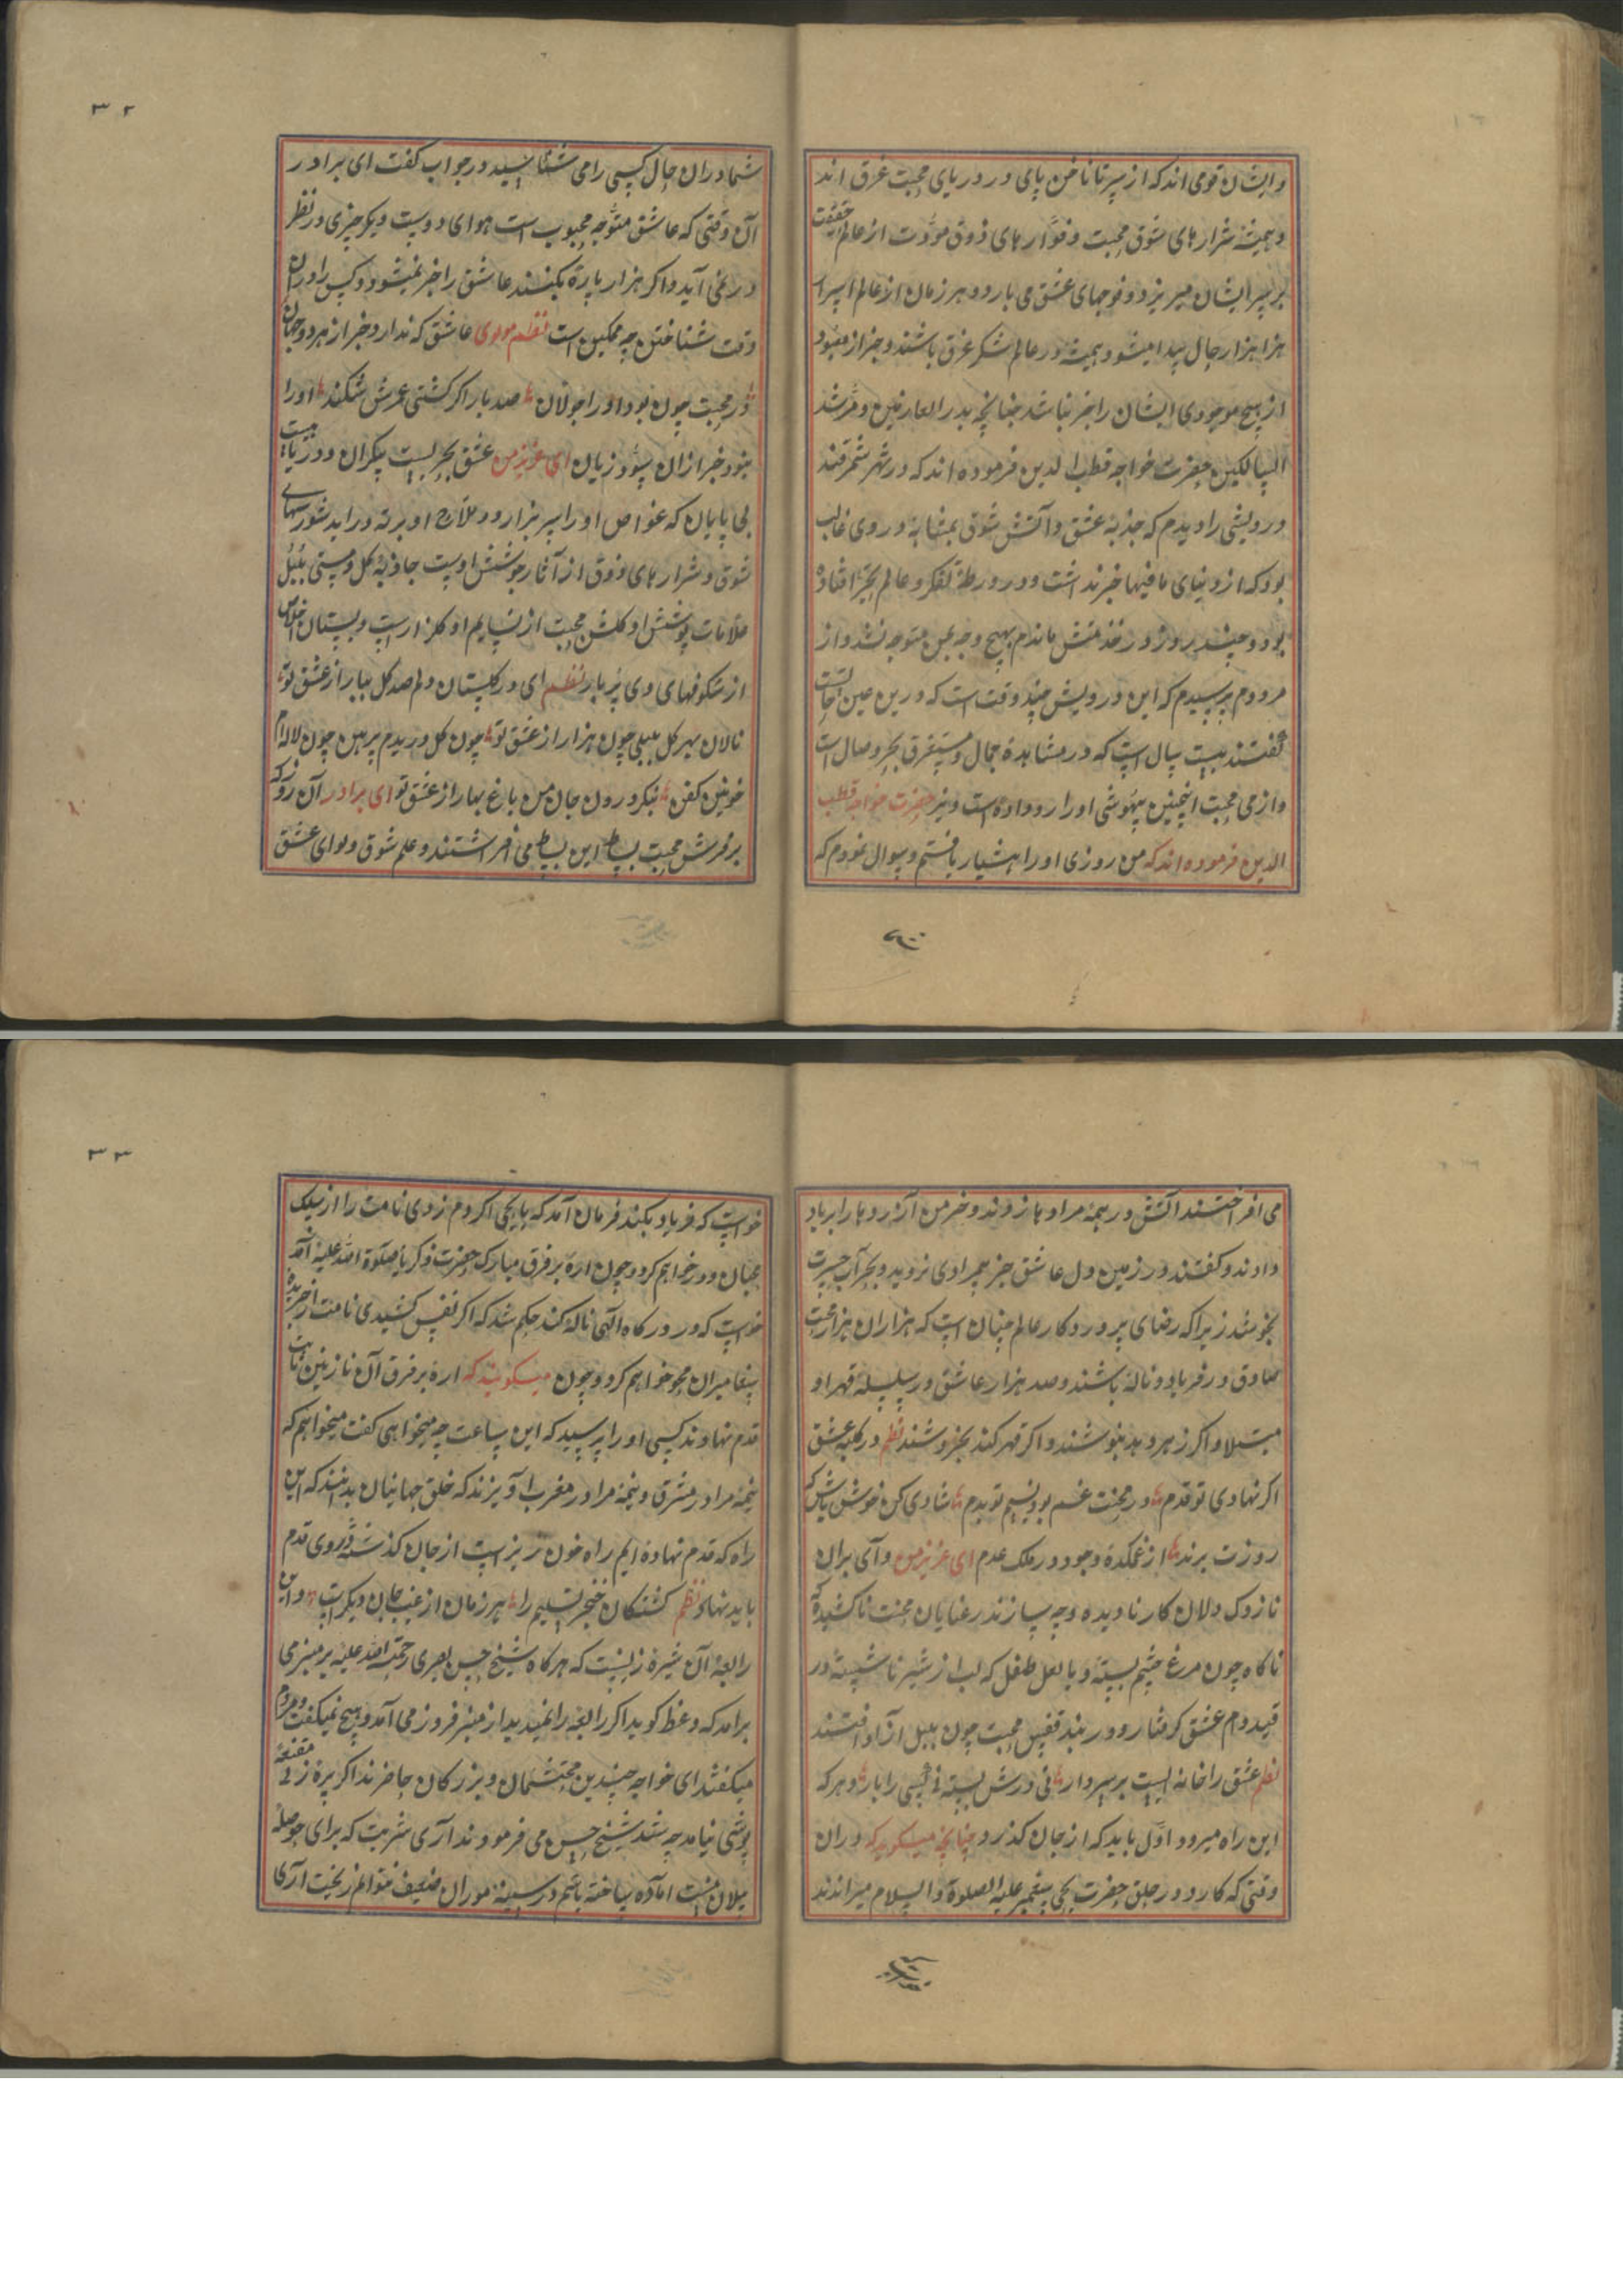 وایشان قومی اند که از سر تا ناخن پای در دریای محبت غرق اند
و همیشه شرارهای شوق محبت و فوارهای ذوق مودت از عالم حقیقت
بر سر ایشان میریزد و فوجهای عشق می بارد و هر زمان از عالم اسرار
هزا هزار حال پیدا میشود و همیشه در عالم شکر غرق باشند و جز از معبود
از هیچ موجودی ایشان را خبر نباشد چنانچه بدر العارفین و مرشد
السالکین حضرت خواجه قطب الدین فرموده اند که در شهر سمرقند
درویشی را دیدم که جذبهٔ عشق و آتش شوق بمثابهٔ در وی غالب
بود که از دنیای مافیها خبر نداشت و در ورطهٔ تفکر و عالم تحیر افتاده
بود و چند روز در خدمتش ماندم بهیچ وجه بمن متوجه نشد و از
مردوم پرسیدم که این درویش چند وقت است که درین عین حالست
گفتند بیست سال است که در مشاهدهٔ جمال و مستغرق بحر وصال است
و از می محبت اینچنین بیهوشی اورا رو داده است و نیز حضرت خواجه قطب
الدین فرموده اند که من روزی اورا هشیار یافتم و سوال نمودم که
۳۲
شما دران حال کسی را می شناسید در جواب گفت ای برادر
آن وقتی که عاشق متوجه محبوب است هوای دوست دیگر چیزی در نظر
در نمی آید و اگر هزار پاره بکنند عاشق را خبر نمیشود و کس را دران
وقت شناختن چه ممکین است نظم مولوی عاشق که ندارد خبر از هر دو جهان
در محبت چون بود اورا جولان صد بار اگر کشتی عمرش شکند اورا
نبود خبر ازان سود و زیان ای عزیز من عشق بحریست بیکران و دریاییست
بی پایان که غواص اورا سر بزارود ملاح او بر ته دراید شورشهای
شوق و شرارهای ذوق از آثار جوشش اوست جاذبهٔ گل و مستی بلبل
علامات پوشش او گلشن محبت از نسایم او گلزار است و بستان اخلاص
از شکوفهای وی پر بار نظم ای در گلستان دلم صد گل ببار از عشق تو
نالان بهر گل بلبلی چون هزار از عشق تو چون گل دریدم پرهن چون لاله ام
خونین کفن بنگر درون جان من باغ بهار از عشق تو ای برادر آن روز که
بر فرش محبت بساط این بساط می افراشتند و علم شوق و لوای عشق
می افراختند آتش در همه مرادها زدند و خرمن آرزوها را برباد
دادند و گفتند در زمین دل عاشق جز بیمرادی نروید و بحر آب حسرت
نجوشد زیرا که رضای پروردگار عالم چنان است که هزاران هزار محب
صادق در فریاد و ناله باشند و صد هزار عاشق در سلسلهٔ قهر او
مبتلا و اگر زهر دهد بنوشند و اگر قهر کند بخروشند نظم در کلبه عشق
اگر نهادی تو قدم در محنت غم بود نسیم تو بدم شادی کن و خوش باش که
روزت برند از غمکدهٔ وجود در ملک عدم ای عزیز من وآی بران
نازوک دلان کار نادیده و چه سازند رعنایان محنت ناکشیده که
ناگاه چون مرغ چشم بسته و یا لعل طفل که لب از شیر ناشسته در
قید دام عشق گرفتار و در بند قفس محبت چون بلبل آزاد افتند
نظم عشق را خانه ایست بر سر دار نی درش بسته نی کسی را بار و هر که
این راه میرود اول باید که از جان گذرد چنانچه میگوید که دران
وقتی که کارد در حلق حضرت یحیی پیغمبر علیه الصلوة والسلام میراندند
۳۳
خواست که فریاد بکند فرمان آمد که یا یحیی اگر دم زدی نامت را از سلک
محبان دور خواهم کرد و چون اره بر فرق مبارک حضرت ذکریا صلوة الله علیه آمد
خواست که در درگاه الهی ناله کند حکم شد که اگر نفس کشیدی نامت را از جریدهٔ
پیغامبران محو خواهم کرد و چون میگویند که اره بر فرق آن نازنین ثابت
قدم نهادند کسی او را پرسید که این ساعت چه میخواهی گفت میخواهم که
نیمهٔ مرا در مشرق و نیمهٔ مرا در مغرب آویزند که خلق جهانیان بدانند که این
راه که قدم نهاده ایم راه خون ریز است از جان گذشته در وی قدم
باید نهاد نظم کشتگان خنجر تسلیم را هر زمان از غیب جان دیگر است و این
رابعه آن شیره زنیست که هرگاه شیخ حسن بصری رحمته الله علیه بر منبر می
برامد که وعظ گوید اگر رابعه را نمیدید از منبر فروز می آمد و هیچ نمیگفت و مردم
میگفتند ای خواجه چندین محتشمان و بزرگان حاضرند اگر پیره زنی مقنعه
پوشی نیامد چه شد شیخ حسن می فرمودند آری شربت که برای حوصلهٔ
پیلان مست آماده ساخته باشم در سینهٔ موران ضعیف نتوانم ریخت آری